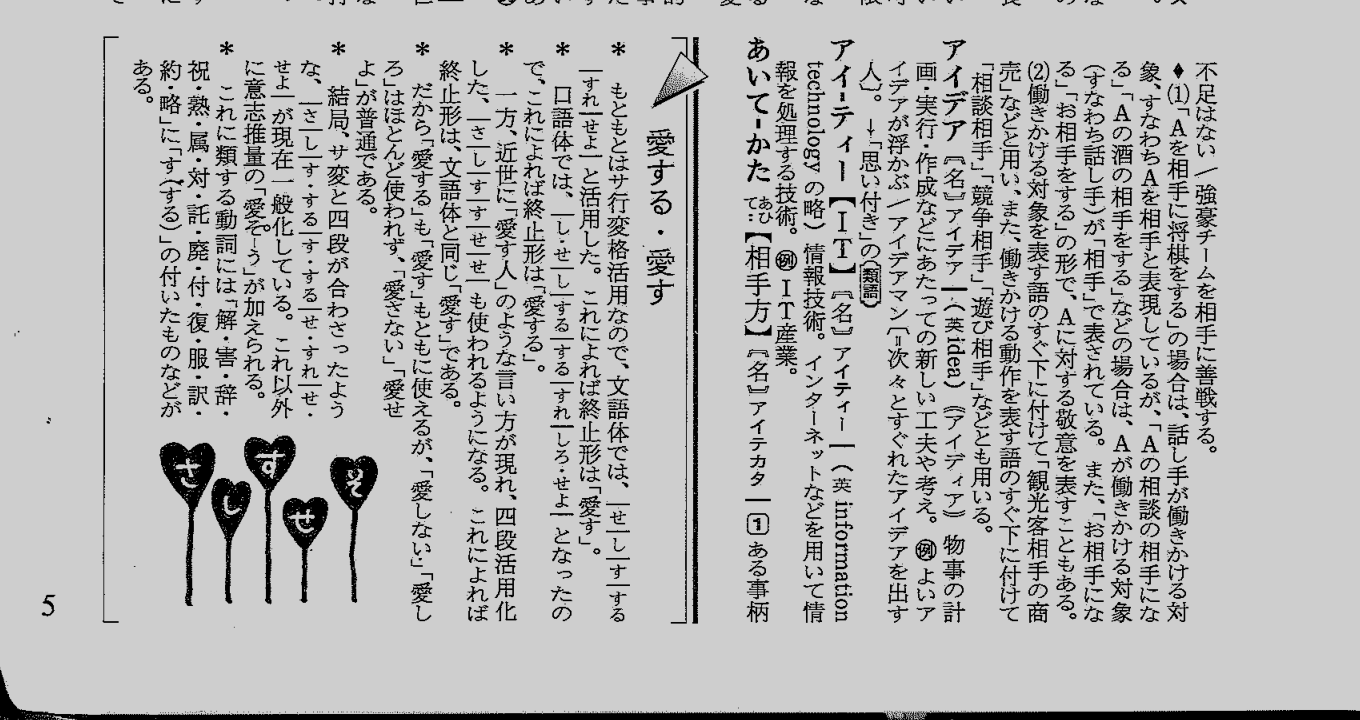 不足はない／強豪チームを相手に善戦する。
♦⑴「Aを相手に将棋をする」の場合は、話し手が働きかける対
象、すなわちAを相手と表現しているが、「Aの相談の相手にな
る」「Aの酒の相手をする」などの場合は、Aが働きかける対象
(すなわち話し手)が「相手」で表されている。また、「お相手にな
る」「お相手をする」の形で、Aに対する敬意を表すこともある。
⑵働きかける対象を表す語のすぐ下に付けて「観光客相手の商
売」などと用い、また、働きかける動作を表す語のすぐ下に付けて
「相談相手」「競争相手」「遊び相手」などとも用いる。
アイデア〘名〙アイデア―(英 idea)《アイディア》物事の計
画・実行・作成などにあたっての新しい工夫や考え。㋹よいア
イデアが浮かぶ／アイデアマン〔=次々とすぐれたアイデアを出す
人〕。→「思い付き」の(類語)
アイ-ティー【IT】〘名〙アイティー―(英 information
technology の略)情報技術。インターネットなどを用いて情
報を処理する技術。例IT産業。
あいて-かた あひて‥【相手方】〘名〙アイテカタ―1ある事柄
愛する・愛す
* もともとはサ行変格活用なので、文語体では、―せ―し―す―する
―すれ―せよ―と活用した。これによれば終止形は「愛す」。
* 口語体では、―し・せ―し―する―する―すれ―しろ・せよ―となったの
で、これによれば終止形は「愛する」。
* 一方、近世に「愛す人」のような言い方が現れ、四段活用化
した、―さ―し―す―す―せ―せ―も使われるようになる。これによれば
終止形は、文語体と同じ「愛す」である。
* だから「愛する」も「愛す」もともに使えるが、「愛しない」「愛し
ろ」はほとんど使われず、「愛さない」「愛せ
よ」が普通である。
* 結局、サ変と四段が合わさったよう
な、―さ―し―す・する―す・する―せ・すれ―せ・
せよ―が現在一般化している。これ以外
に意志推量の「愛そ―う」が加えられる。
* これに類する動詞には「解・害・辞・
祝・熟・属・対・託・廃・付・復・服・訳・
約・略」に「す(する)」の付いたものなどが
ある。
そ
せ
す
し
さ
5